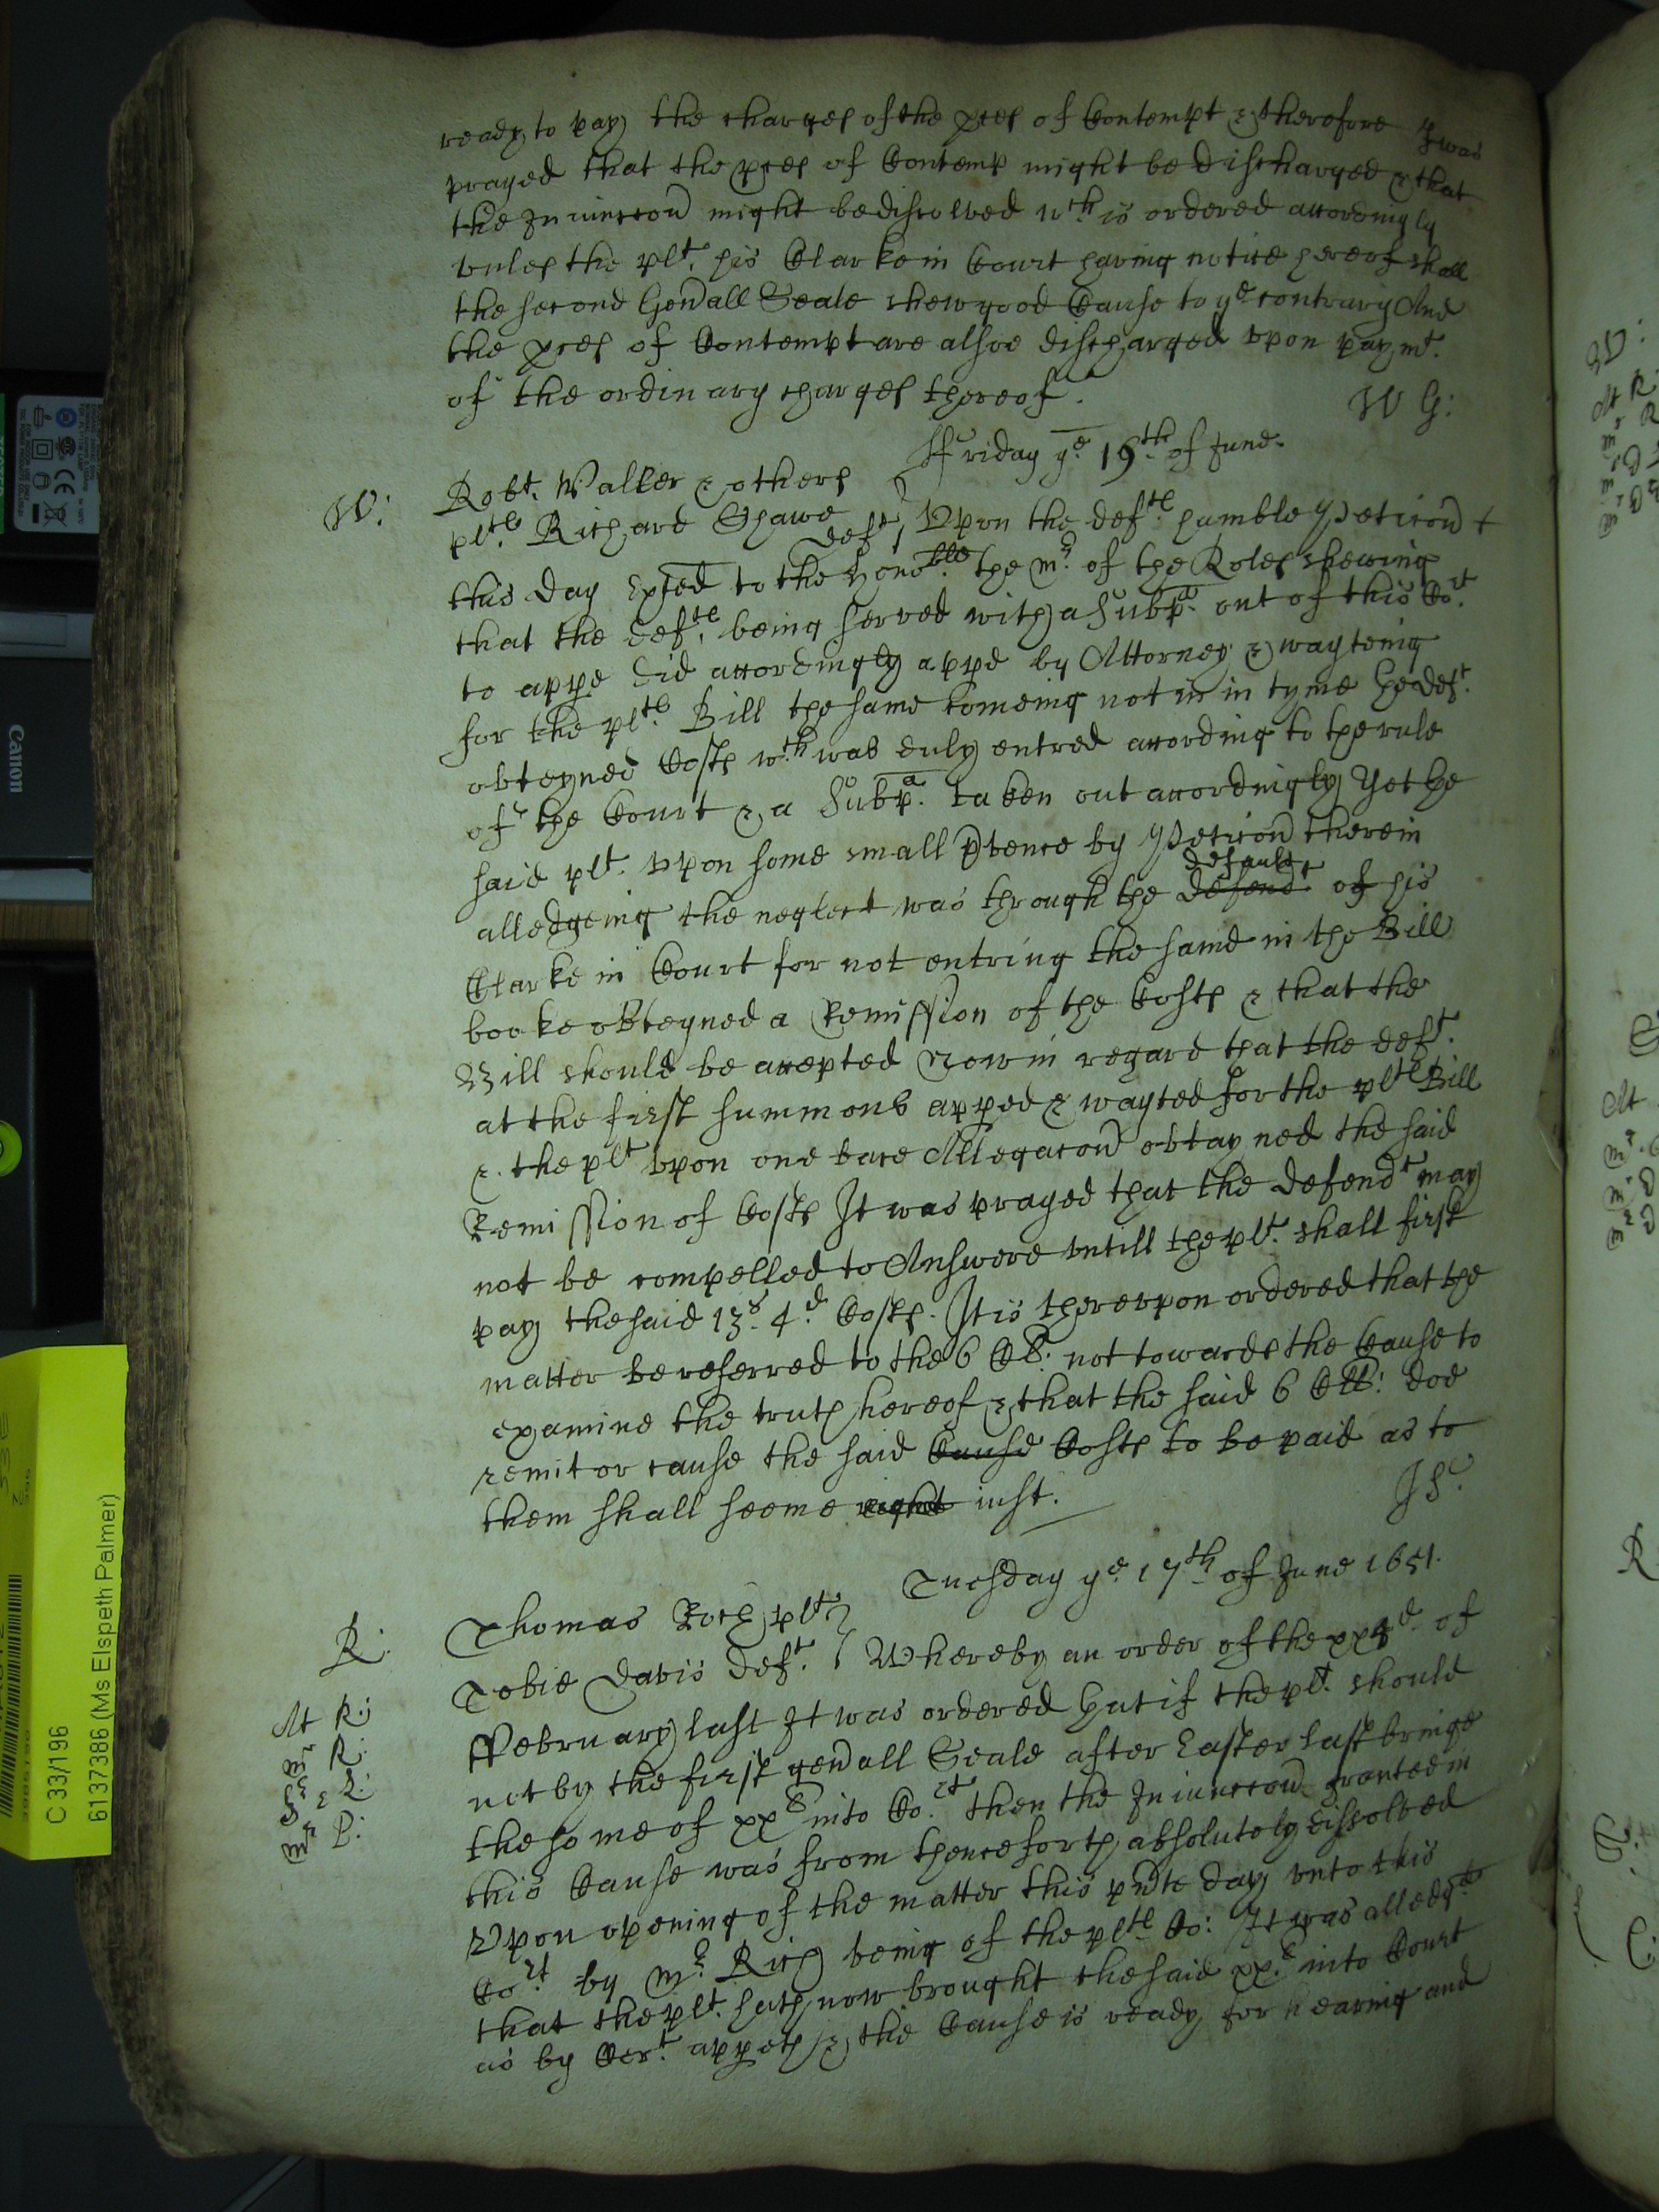 ready to pay the charges of the pces of Contempt & therefore It was
prayed that the pces of Contemp might be discharged & that
the Iniunccon might be dissolved wch is ordered accordingly
vnles the plt. his Clarke in Court having notice hereof shall
the second Genall Seale shew good Cause to ye contrary And
the pces of Contempt are alsoe discharged vpon paymt.
of the ordinary charges thereof.
W G:
Ffriday ye 19th of June.
W:
Robt. Waller & others
plts. Richard Shawe
deft. Vpon the defts. humble Peticon
this day Exhed to the Honoble the Mr. of the Roles shewing
that the defts. being served with a Subpa. out of this Cort.
to appe did accordingly appe by Attorney & wayteing
for the plts. Bill the same comeing not in in tyme the deft.
obteyned Costs wch was duly entred according to the rule
of the Court & a Subpa. taken out accordingly Yet the
said plt. vpon some small ptence by Peticon therein
alledgeing the neglect was through the defend default of his
Clarke in Court for not entring the same in the Bill
booke obteyned a Remission of the Costs & that the
Bill should be accepted Now in regard that the deft.
at the first summons apped & wayted for the plts Bill
& the plt vpon one bare Allegacon obtayned the said
Remission of Costs It was prayed that the defendt may
not be compelled to Answere vntill the plt. shall first
pay the said 13s. 4d. Costs. It is therevpon ordered that the
matter be referred to the 6 Cl: not towards the Cause to
examine the truth hereof & that the said 6 Cll: doe
remit or cause the said Cause Costs to be paid as to
them shall seeme right iust.
JS.
Tuesday ye. 17th of June 1651.
R:
Thomas Rich plt
Tobie Davis deft. Whereby an order of the xx4th of
At R:
Mr R:
Mr P:
Ffebruary last It was ordered that if the plt. should
not by the first genall Seale after Easter last bringe
the some of xxs into Cort then the Iniunccon granted in
this Cause was from thenceforth absolutely dissolved
Vpon opening of the matter this pnte day vnto this
Cort by Mr. Rich being of the plts Co: It was alledged
that the plt. hath now brought the said xxs. into Court
as by Cert. appeth & the Cause is ready for hearing and
Canon
C 33/196
6137386 (Ms Elspeth Palmer)